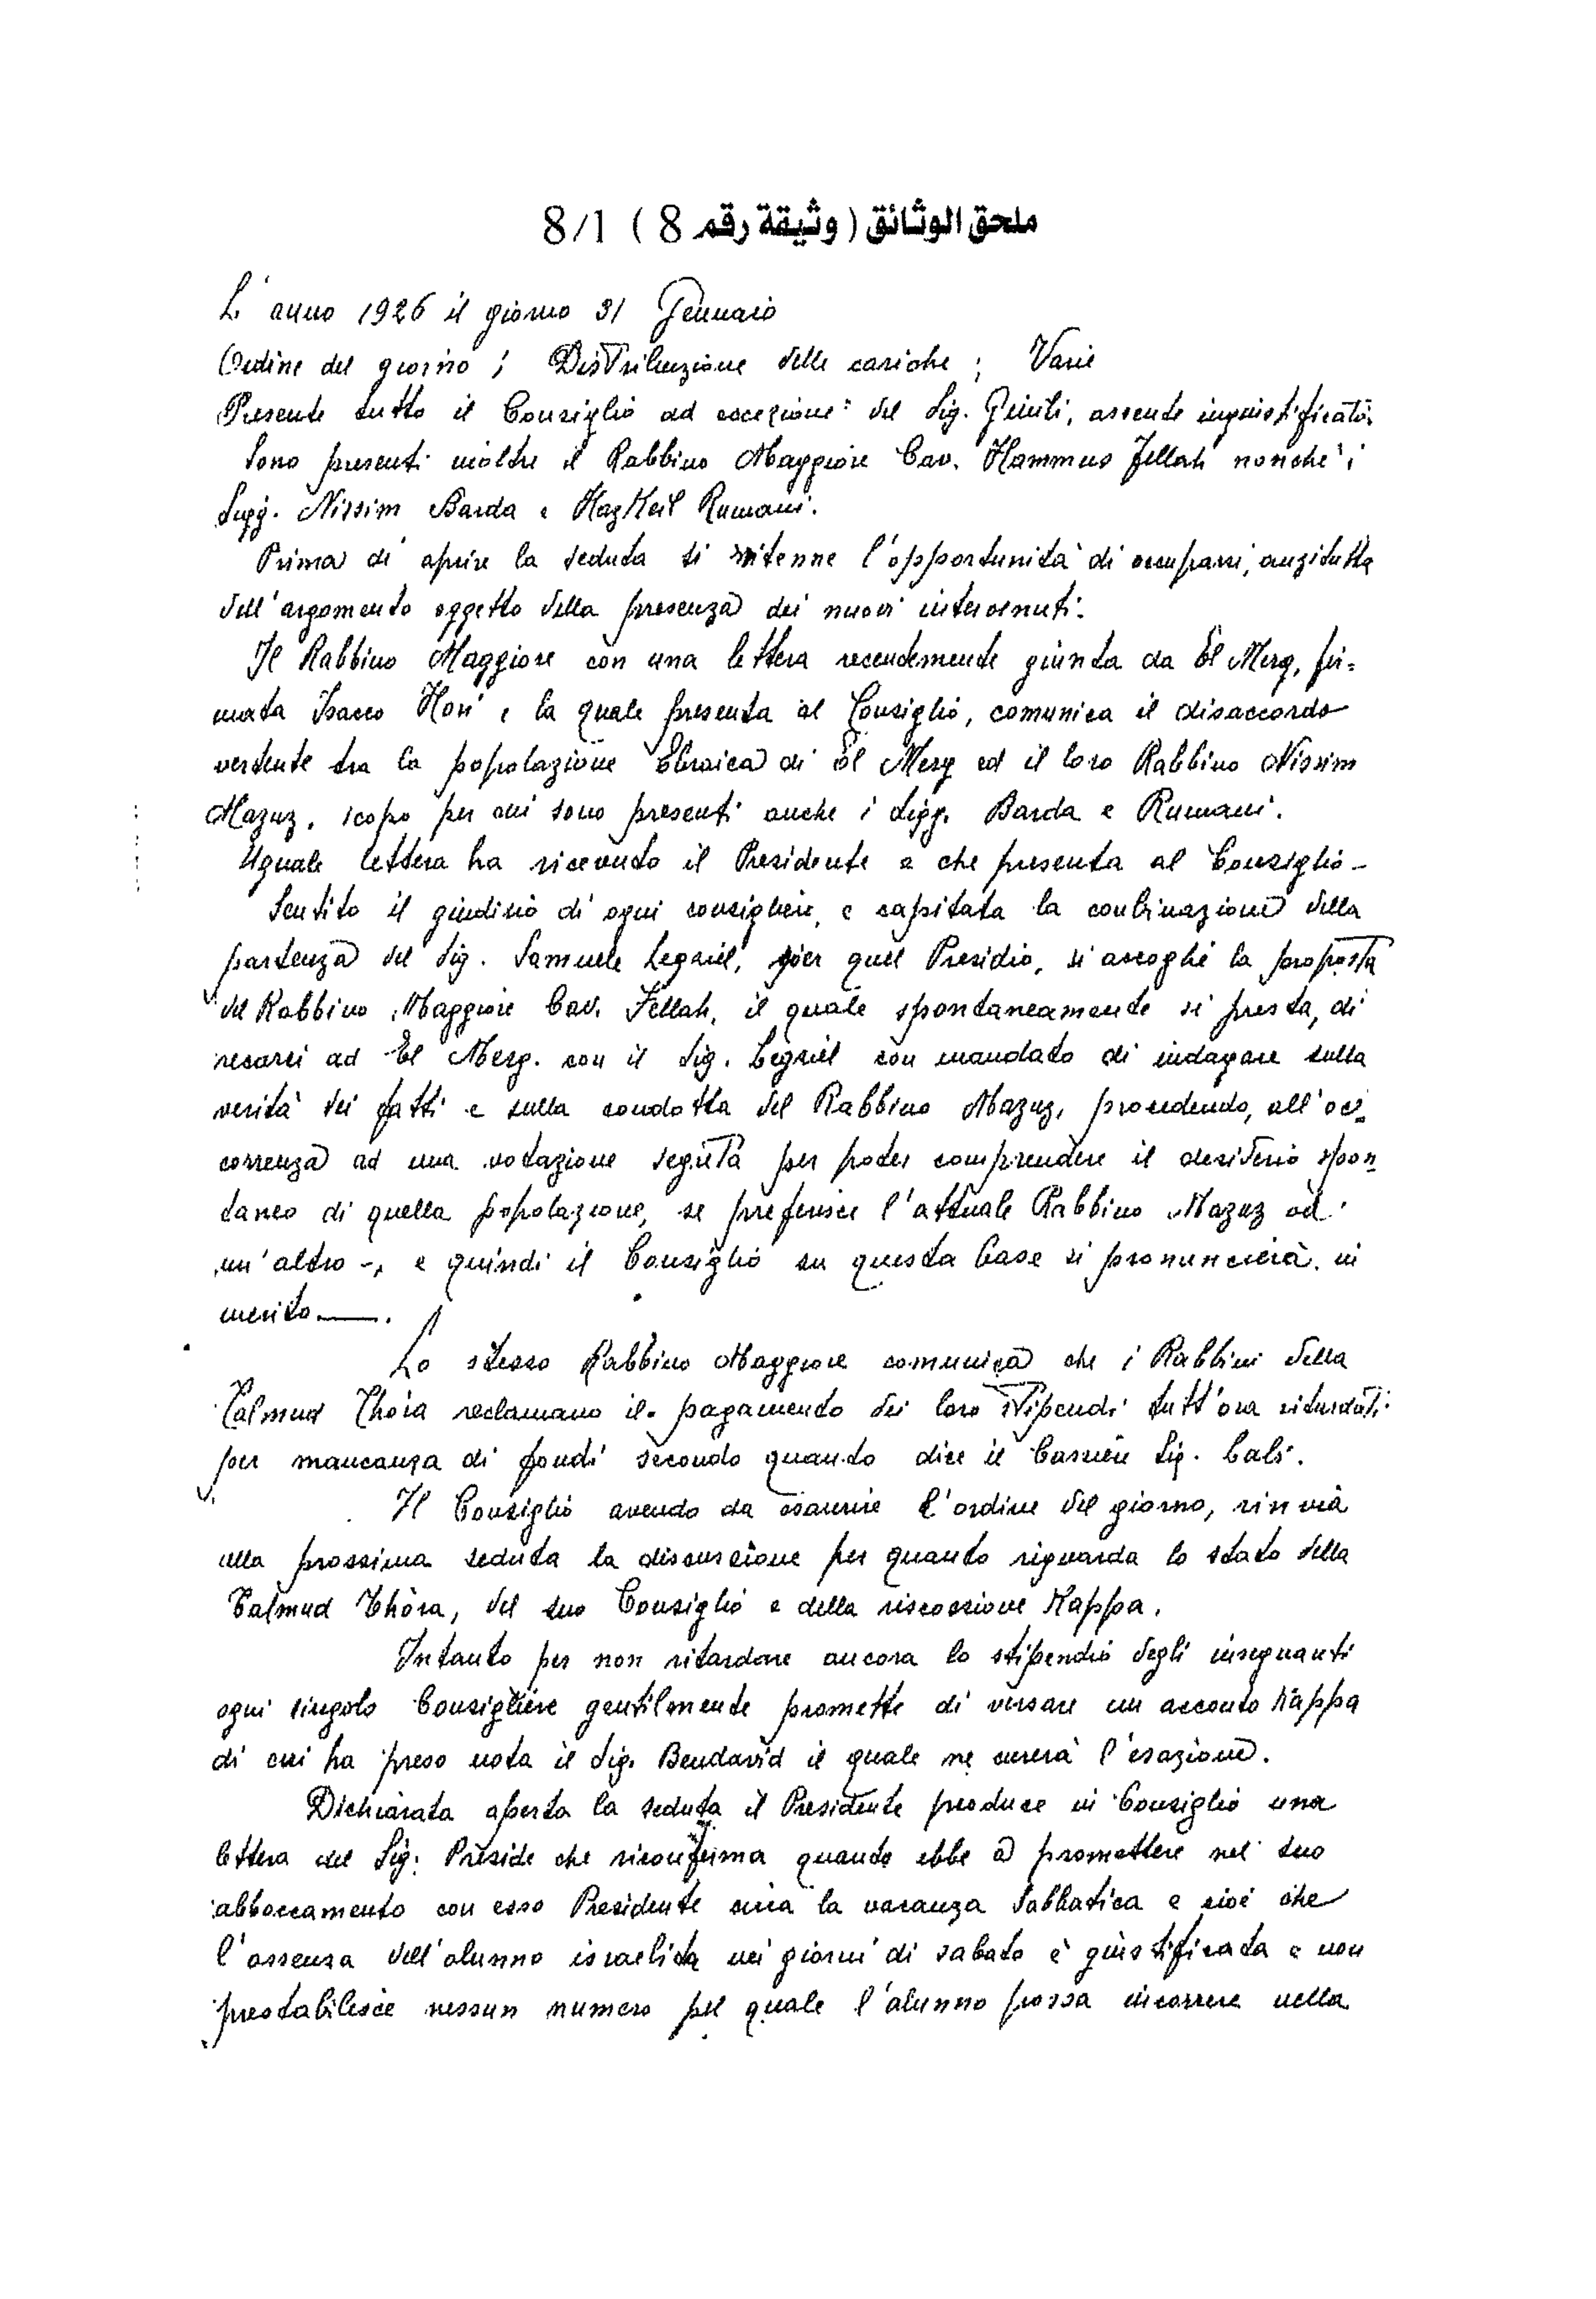 ملحق الوثائق ( وثيقة رقم 8 ) 8/1
L'anno 1926 il giorno 31 Gennaio
Ordine del giorno ; Distribuzione delle cariche ; Varie
Presente tutto il Consiglio ad eccezione del Sig. Giuili, assente ingiustificato.
Sono presenti inoltre il Rabbino Maggiore Cav. Hammus Fellah nonchè i
Sigg. Nissim Barda e Hazkeil Rumani.
Prima di aprire la seduta si ritenne l'opportunità di occuparsi, anzitutto
dell'argomento oggetto della presenza dei nuovi intervenuti.
Il Rabbino Maggiore con una lettera recentemente giunta da El Merg, fir=
mata Isacco Hori e la quale presenta al Consiglio, comunica il disaccordo
vertente tra la popolazione Ebraica di El Merg ed il loro Rabbino Nissim
Mazuz, scopo per cui sono presenti anche i Sigg. Barda e Rumani.
Uguale lettera ha ricevuto il Presidente e che presenta al Consiglio -
Sentito il giudizio di ogni consigliere, e capitata la conbinazione della
partenza del Sig. Samuele Legziel, per quel Presidio, si accoglie la proposta
del Rabbino Maggiore Cav. Fellah, il quale spontaneamente si presta, di
recarsi ad El Merg. con il Sig. Legziel con mandato di indagare sulla
verità dei fatti e sulla condotta del Rabbino Mazuz, procedendo, all'oc=
correnza ad una votazione segreta per poter comprendere il desiderio spon=
taneo di quella popolazione, se preferisce l'attuale Rabbino Mazuz od
un'altro -, e quindi il Consiglio su questa base si pronuncierà in
merito ——.
Lo stesso Rabbino Maggiore comunica che i Rabbini della
Talmud Thora reclamano il pagamento dei loro stipendi tutt'ora ritardati
per mancanza di fondi secondo quanto dice il Cassiere Sig. Cali.
Il Consiglio avendo da esaurire l'ordine del giorno, rinvia
alla prossima seduta la discussione per quanto riguarda lo stato della
Talmud Thora, del suo Consiglio e della riscossione Kappa.
Intanto per non ritardare ancora lo stipendio degli insegnanti
ogni singolo Consigliere gentilmente promette di versare un acconto Kappa
di cui ha preso nota il Sig. Bendavid il quale ne curerà l'esazione.
Dichiarata aperta la seduta il Presidente produce in Consiglio una
lettera del Sig. Preside che riconferma quando ebbe a promettere nel suo
abboccamento con esso Presidente circa la vacanza Sabbatica e cioè che
l'assenza dell'alunno israelita nei giorni di sabato è giustificata e non
prestabilisce nessun numero pel quale l'alunno possa incorrere nella